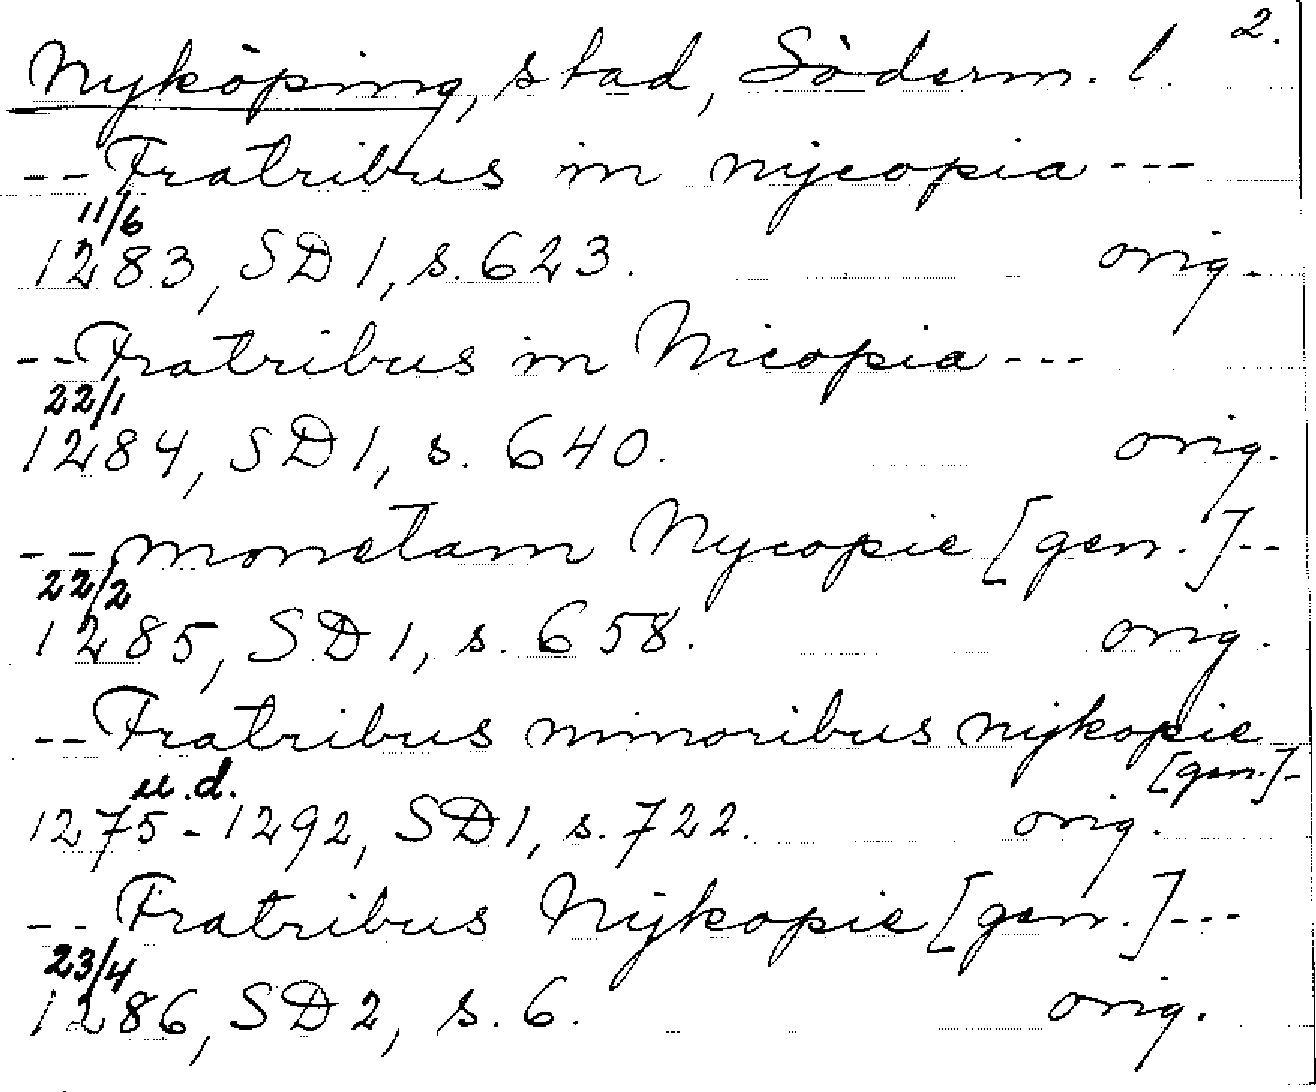 2.
Nyköping, stad, Söderm. l.
-- Fratribus in nÿcopia ---
11/6
1283, SD 1, s. 623. orig.
-- Fratribus in Nicopia ---
22/1
1284, SD 1, s. 640. orig.
-- monetam Nycopie [gen.] --
22/2
1285, SD 1, s. 658. orig.
-- Fratribus minoribus nÿkopie
[gen.] -
u.d.
1275-1292, SD 1, s. 722. orig.
-- Fratribus Nÿkopie [gen.] ---
23/4
1286, SD 2, s. 6. orig.